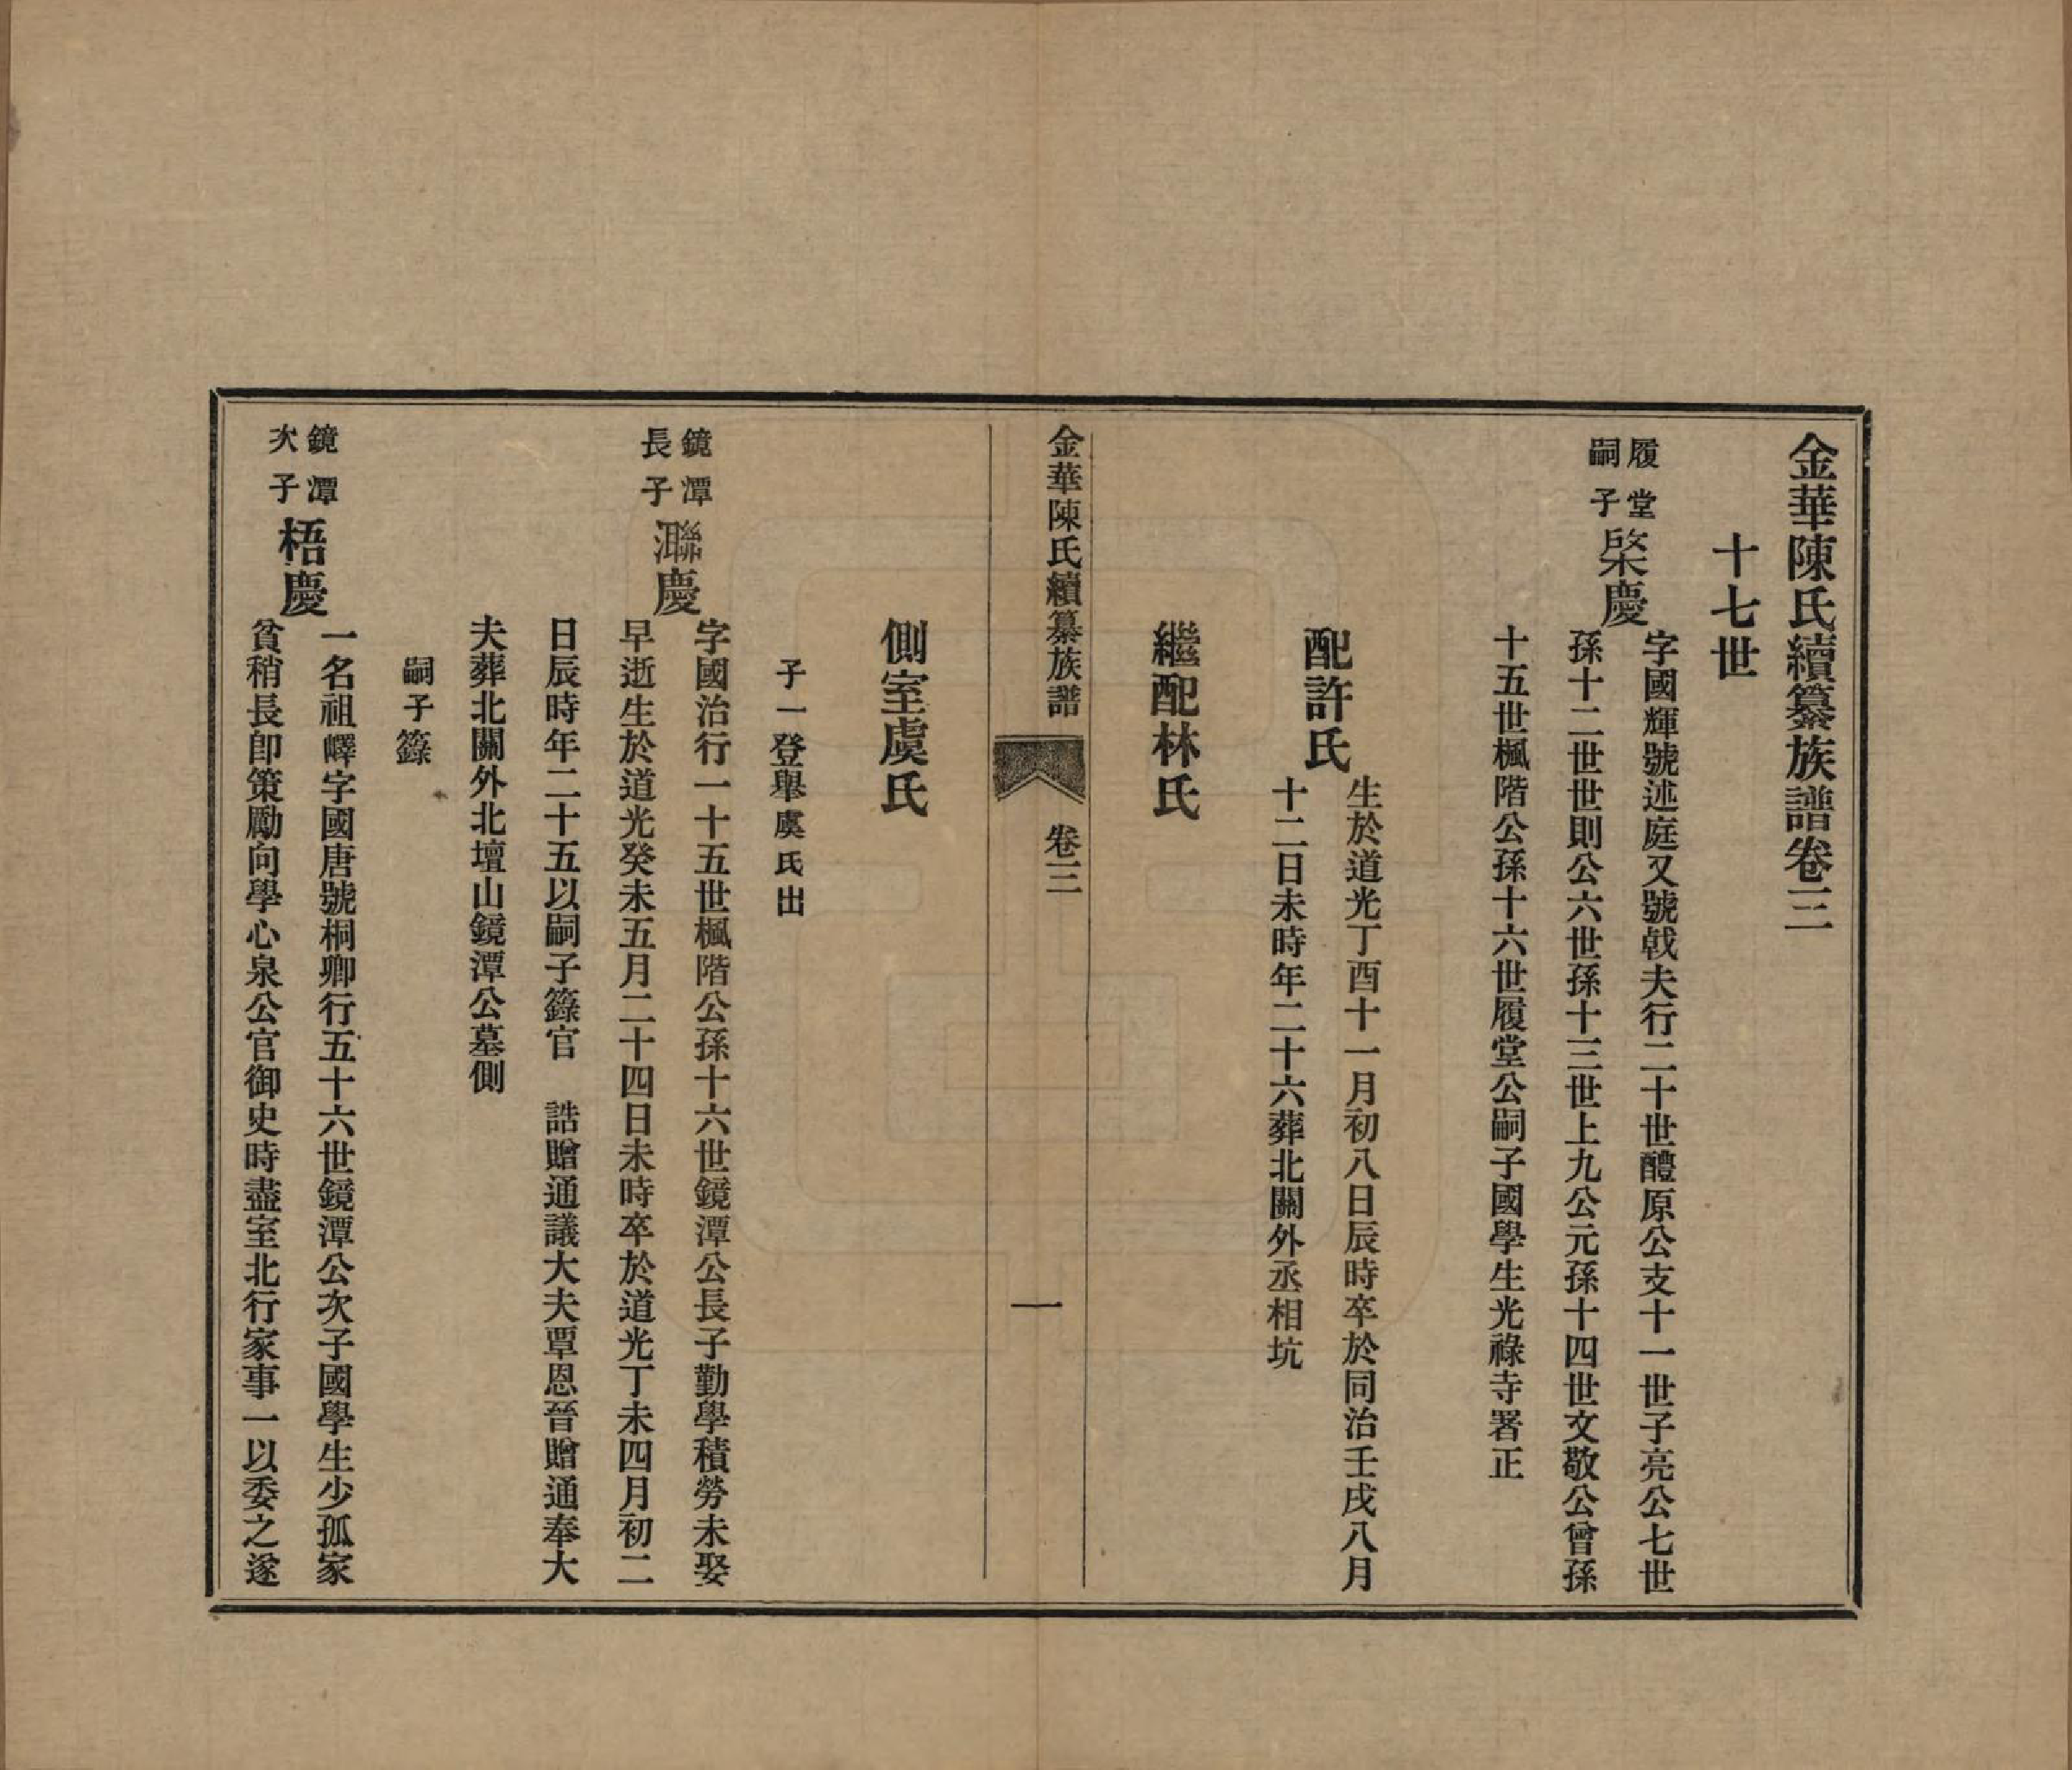 金華陳氏續纂族譜卷三
十七世
履堂
嗣子
棨慶
字國輝號述庭又號戟夫行二十世醴原公支十一世子亮公七世
孫十二世世則公六世孫十三世上九公元孫十四世文敬公曾孫
十五世楓階公孫十六世履堂公嗣子國學生光祿寺署正
配許氏
生於道光丁酉十一月初八日辰時卒於同治壬戌八月
十二日未時年二十六葬北關外丞相坑
繼配林氏
金華陳氏續纂族譜 卷三 一
側室虞氏
子一登舉虞氏出
鏡潭
長子
慶
字國治行一十五世楓階公孫十六世鏡潭公長子勤學積勞未娶
早逝生於道光癸未五月二十四日未時卒於道光丁未四月初二
日辰時年二十五以嗣子籙官 誥贈通議大夫覃恩晉贈通奉大
夫葬北關外北壇山鏡潭公墓側
嗣子籙
鏡潭
次子
梧慶
一名祖嶧字國唐號桐卿行五十六世鏡潭公次子國學生少孤家
貧稍長卽策勵向學心泉公官御史時盡室北行家事一以委之遂